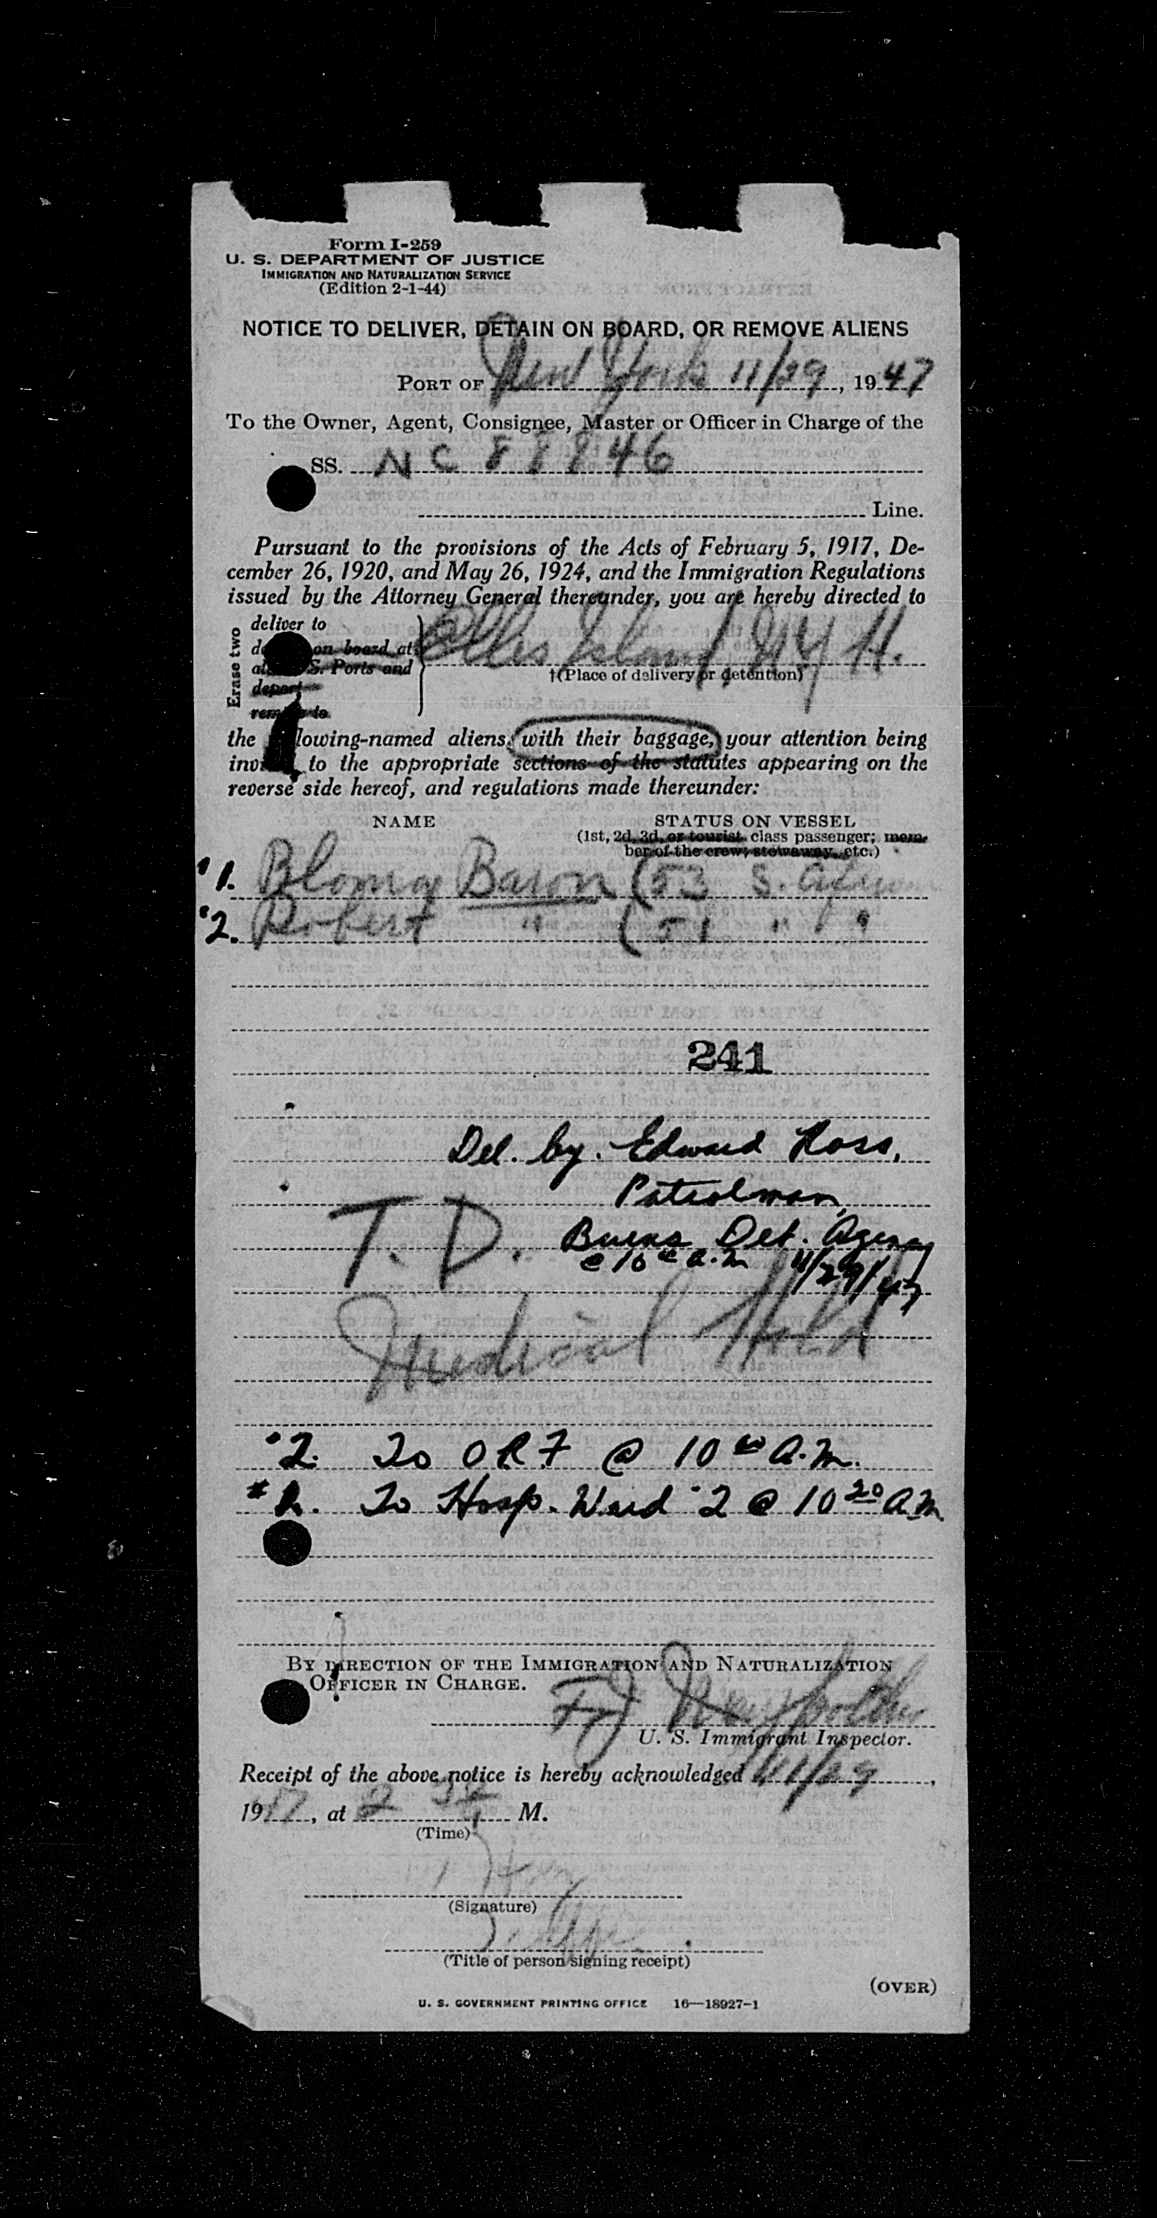 Form I-259
U. S. DEPARTMENT OF JUSTICE
IMMIGRATION AND NATURALIZATION SERVICE
(Edition 2-1-44)
NOTICE TO DELIVER, DETAIN ON BOARD, OR REMOVE ALIENS
PORT OF New York 11/29, 1947
To the Owner, Agent, Consignee, Master or Officer in Charge of the
SS. NC 88846
Line.
Pursuant to the provisions of the Acts of February 5, 1917, De-
cember 26, 1920, and May 26, 1924, and the Immigration Regulations
issued by the Attorney General thereunder, you are hereby directed to
Erase two
deliver to
on board at
S. Ports and
depart
to
Ellis Island, NY H.
†(Place of delivery or detention)
the lowing-named aliens, with their baggage, your attention being
to the appropriate sections of the statutes appearing on the
reverse side hereof, and regulations made thereunder:
NAME STATUS ON VESSEL
(1st, 2d, 3d, or tourist class passenger; mem-
ber of the crew; stowaway, etc.)
#1. Baron (53 S.
#2. Robert " (51 " "
241
Del. by. Edward Ross,
Patrolman,
Burns Det. Agency
@ 10 a.m 11/29/47
T. D.
Medical Hold
#2. To @ 10 A.M.
#1. To Hosp. Ward #2 @ 10 20 AM
BY DIRECTION OF THE IMMIGRATION AND NATURALIZATION
OFFICER IN CHARGE.
U. S. Immigrant Inspector.
Receipt of the above notice is hereby acknowledged 11/29,
1947, at 2 M.
(Time)
(Signature)
(Title of person signing receipt)
(OVER)
U. S. GOVERNMENT PRINTING OFFICE 16—18927-1